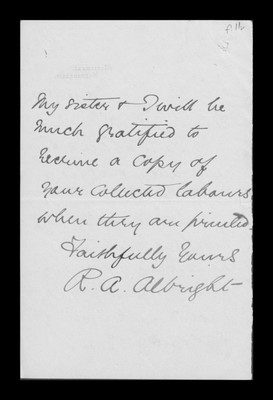 My sister & I will be
much gratified to
receive a copy of
your collected labours
when they are printed.
Faithfully Yours
R. A. Albright